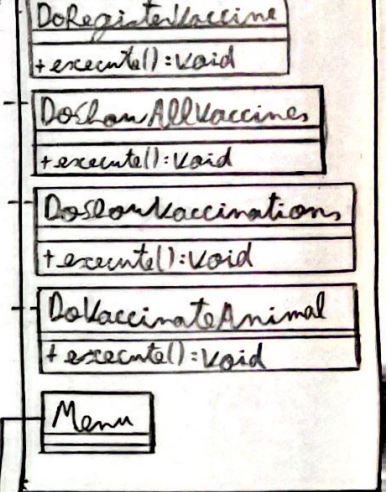 DoRegisterVaccine
+execute():void
DoShowAllVaccines
+execute():void
DoShowVaccinations
+execute():void
DoVaccinateAnimal
+execute():void
Menu